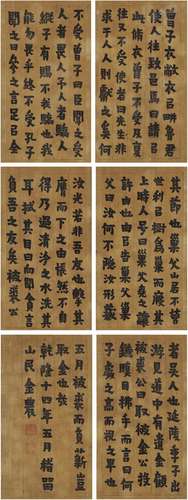 曾子衣敝衣以耕魯君
使人往致邑焉曰請
以此脩衣曾子不受反復
往又不受使者曰先生非
求于人人則獻之奚為
不受曾子曰臣聞之受
人者畏人予人者驕人
縱子有賜不我驕也我
能勿畏乎終不受孔子
聞之曰參之言足以全
其節也巢父山居不營
世利以樹為巢而寢其
上時人号曰巢父堯之讓
許由也由以告巢父巢
父曰汝何不隱汝形藏
汝光若非吾友也擊其
膺而下之由悵然不自
得乃過清泠之水洗其
耳拭其目曰向聞貪言
負吾之友矣被裘公
者吳人也延陵季子出
游見道中有遺金顧
被裘公曰取彼金公投
鐮瞋目拂手而言曰何
子處之高而視人之卑
五月被裘而負薪豈
取金也哉
乾隆十四年五月稽留
山民金農